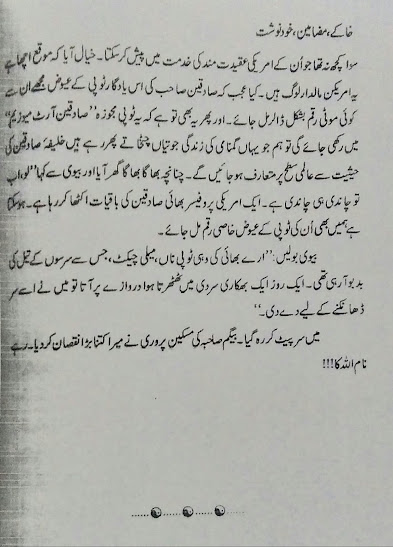 خاکے، مضامین، خود نوشت
سوا کچھ نہ تھا جو اُن کے امریکی عقیدت مند کی خدمت میں پیش کرسکتا۔ خیال آیا کہ موقع اچھا ہے
یہ امریکن مالدار لوگ ہیں۔ کیا عجب کہ صادقین صاحب کی اس یادگار ٹوپی کے عیوض مجھے ان سے
کوئی موٹی رقم بشکل ڈالر مل جائے۔ اور پھر یہ بھی تو ہے کہ یہ ٹوپی مجوزہ ’’صادقین آرٹ میوزیم‘‘
میں رکھی جائے گی تو ہم جو یہاں گمنامی کی زندگی جوتیاں چٹخاتے پھر رہے ہیں خلیفۂ صادقین کی
حیثیت سے عالمی سطح پر متعارف ہو جائیں گے۔ چنانچہ بھاگا بھاگا گھر آیا اور بیوی سے کہا ’’لو اب
تو چاندی ہی چاندی ہے۔ ایک امریکی پروفیسر بھائی صادقین کی باقیات اکٹھا کر رہا ہے۔ ہوسکتا
ہے ہمیں بھی اُن کی ٹوپی کے عیوض خاصی رقم مل جائے۔
بیوی بولیں: ’’ارے بھائی کی وہی ٹوپی ناں، میلی چیکٹ، جس سے سرسوں کے تیل کی
بد بو آرہی تھی۔ ایک روز ایک بھکاری سردی میں ٹھٹھرتا ہوا دروازے پر آتا تو میں نے اسے سر
ڈھانکنے کے لیے دے دی۔‘‘
میں سر پیٹ کر رہ گیا۔ بیگم صاحبہ کی مسکین پروری نے میرا کتنا بڑا نقصان کر دیا۔ رہے
نام اللہ کا!!!